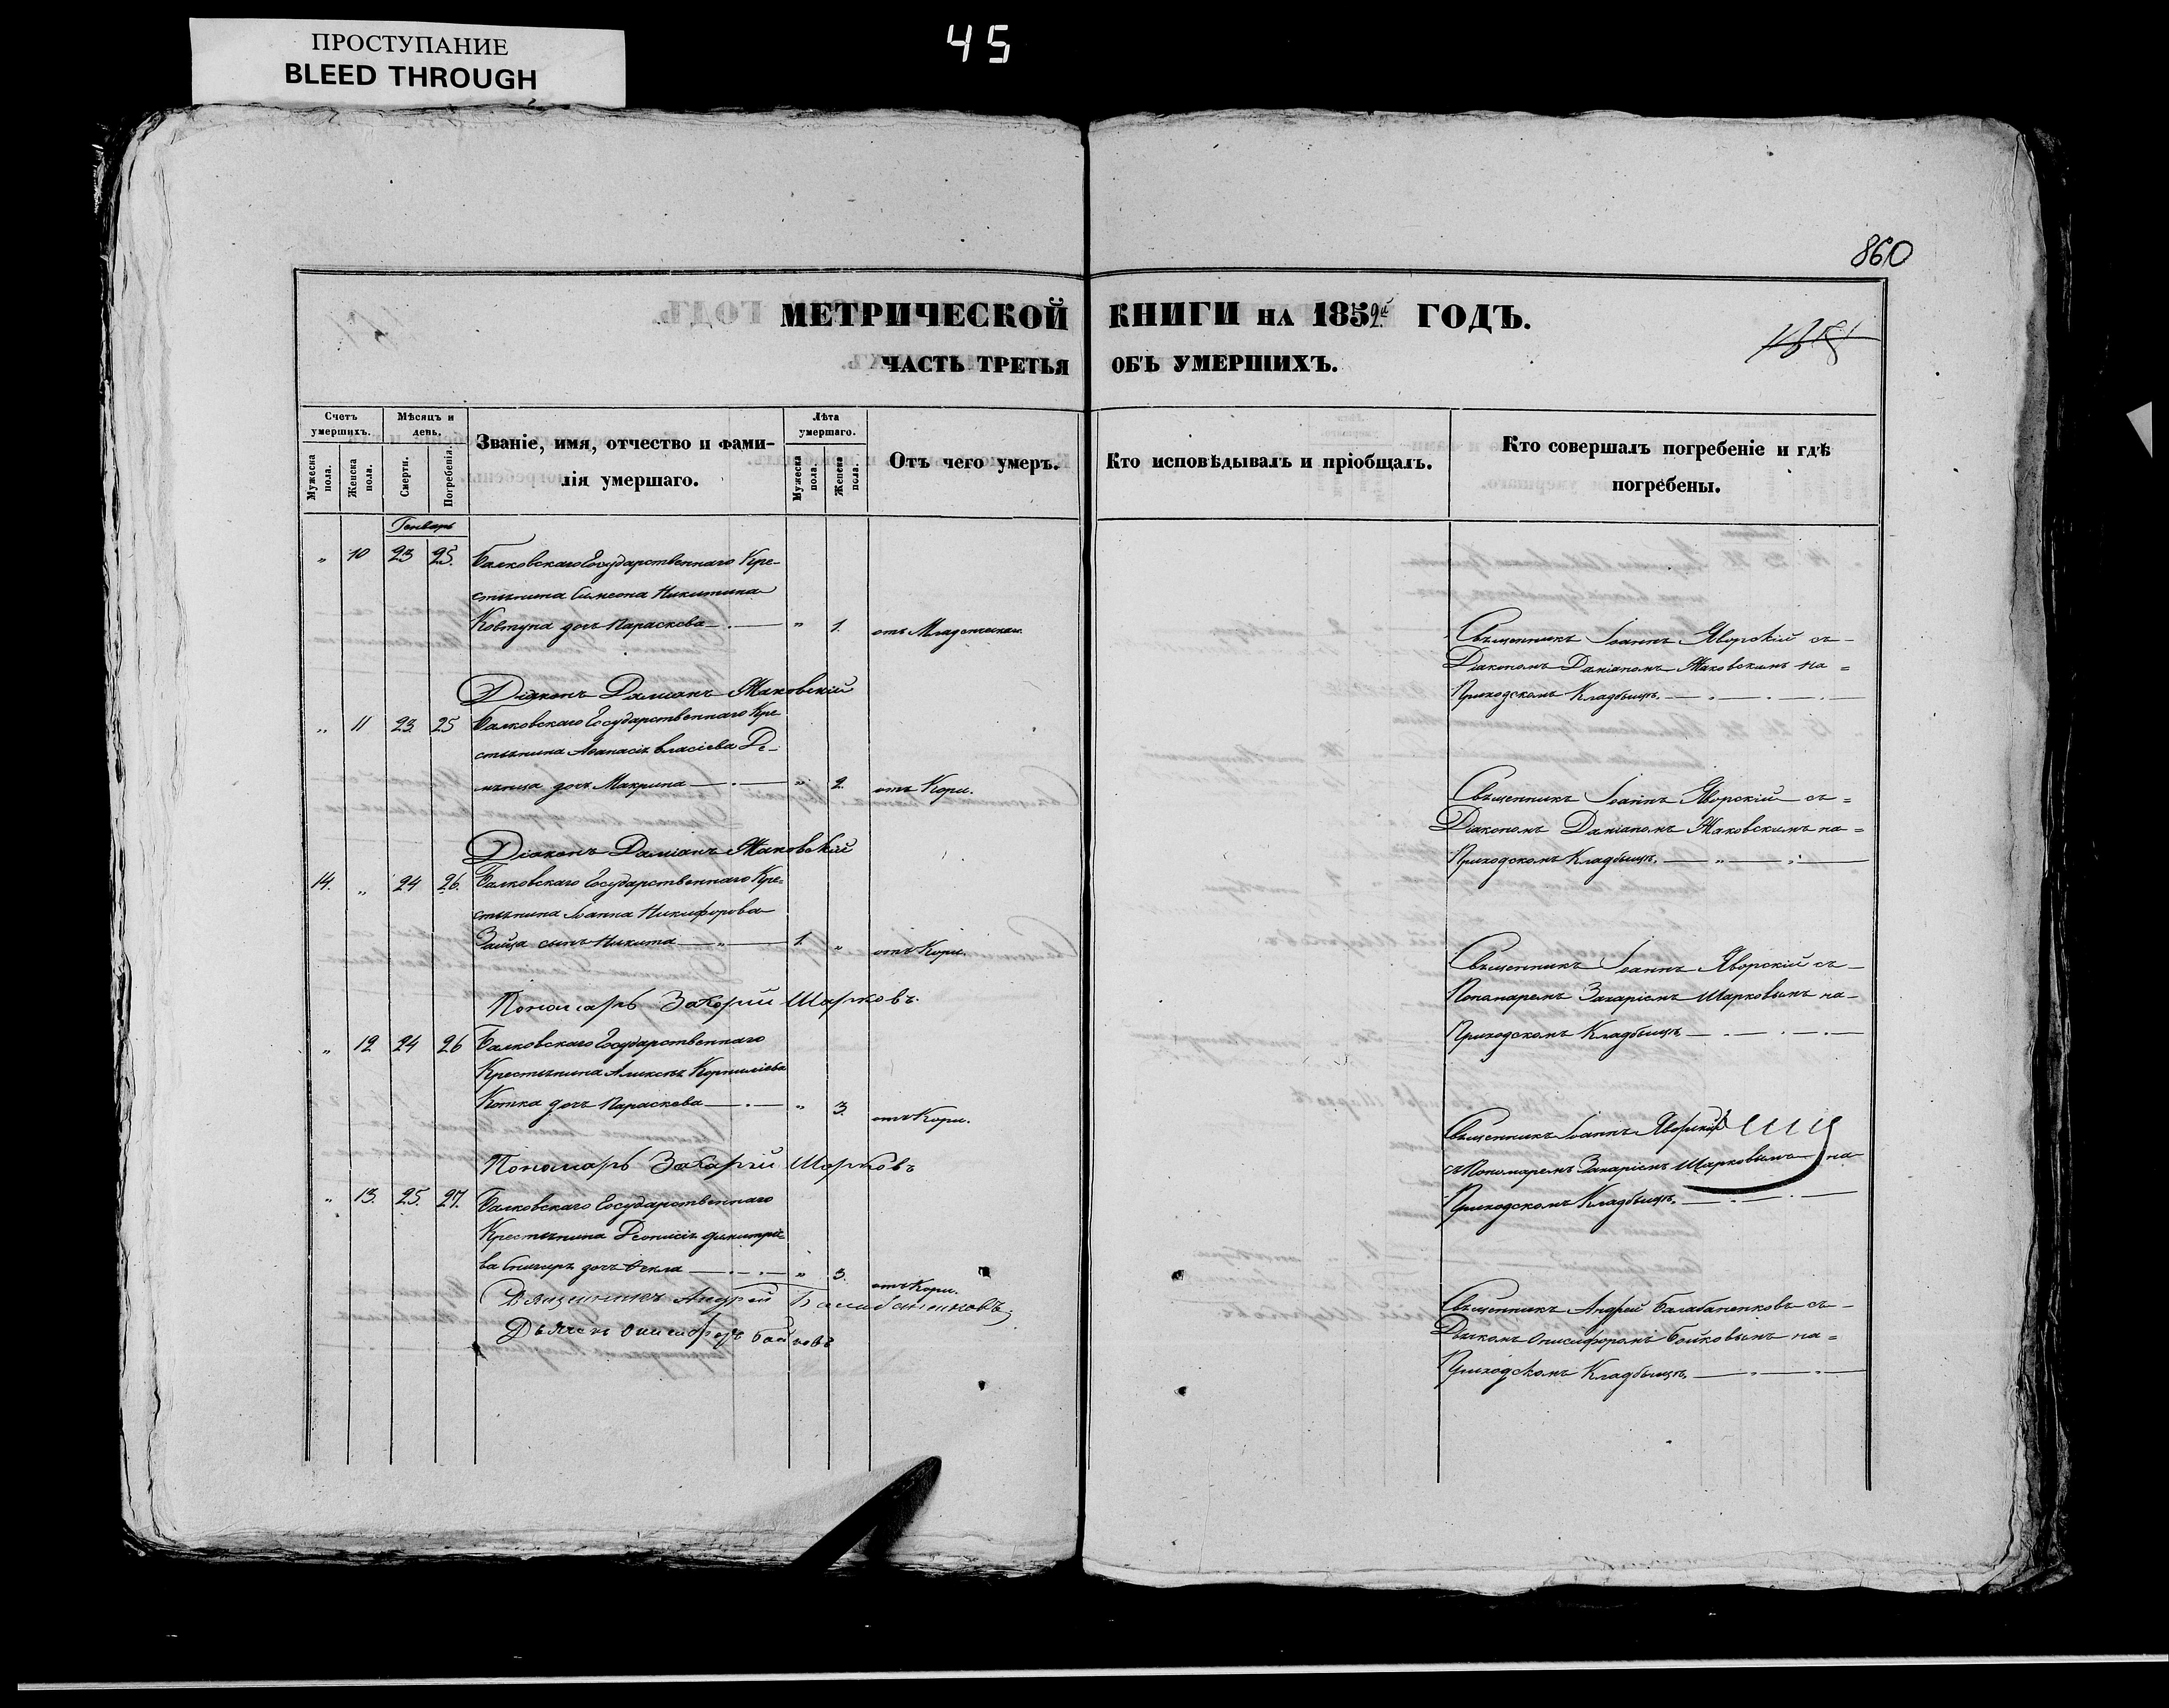 ПРОСТУПАНИЕ
BLEED THROUGH
45
860
МЕТРИЧЕСКОЙ КНИГИ НА 1859й ГОДЪ.
ЧАСТЬ ТРЕТЬЯ ОБЪ УМЕРШИХЪ.
Счетъ умершихъ.
Мужеска пола.
Женска пола.
Мѣсяцъ и день.
Смерти.
Погребенія.
Званіе, имя, отчество и фами-
лія умершаго.
Лѣта умершаго.
Мужеска пола.
Женска пола.
Отъ чего умеръ.
Кто исповѣдывалъ и пріобщалъ.
Кто совершалъ погребеніе и гдѣ
погребены.
Генварь
„ 10 23 25. Балковскаго Государственнаго Кре-
стьянина Симеона Никитина
Ковтуна дочь Параскева „ 1. отъ Младенческой
Священникъ Іоаннъ Яворскій съ
Діакономъ Даміаномъ Маковскимъ на
Приходскомъ Кладбищѣ.
Діаконъ Даміанъ Маковскій
„ 11 23 25 Балковскаго Государственнаго Кре
стьянина Аѳанасія Власіева
дочь Макрина „ 2 отъ Кори.
Священникъ Іоаннъ Яворскій съ
Діакономъ Даміаномъ Маковскимъ на
Приходскомъ Кладбищѣ.
Діаконъ Даміанъ Маковскій
14. „ 24 26. Балковскаго Государственнаго Кре-
стьянина Іоанна Никифорова
Зайца сынъ Никита 1. „ отъ Кори.
Священникъ Іоаннъ Яворскій съ
Понамаремъ Захаріемъ Шарковымъ на
Приходскомъ Кладбищѣ
Пономарь Захарій Шарковъ.
„ 12 24 26 Балковскаго Государственнаго
Крестьянина Алексѣя Корниліева
Котка дочь Параскева „ 3. отъ Кори.
Священникъ Іоаннъ Яворскій
съ Пономаремъ Захаріемъ Шарковымъ на
Приходскомъ Кладбищѣ.
Пономарь Захарій Шарковъ
„ 13. 25. 27. Балковскаго Государственнаго
Крестьянина Діонисія Димитріе
ва дочь Ѳекла „ 3. отъ Кори.
Священникъ Андрей Балабаненковъ съ
Дьячкомъ Онисифоромъ Бойковымъ на
Приходскомъ Кладбищѣ.
Священникъ Андрей Балабаненковъ;
Дьячекъ Онисифоръ Бойковъ